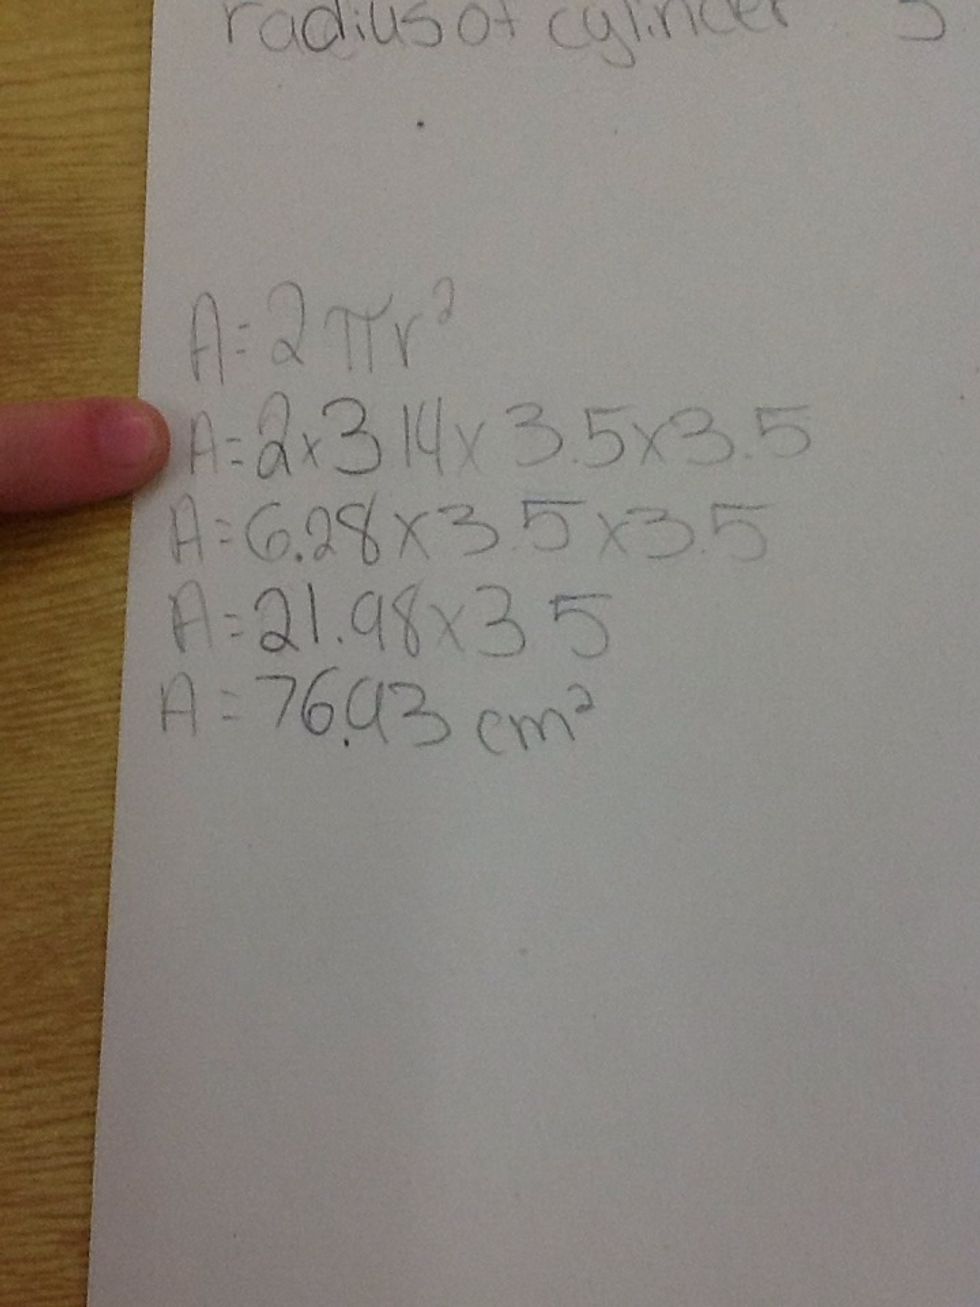 radius of cylinder
A=2πr²
A=2x3.14x3.5x3.5
A=6.28x3.5x3.5
A=21.98x3.5
A=76.93 cm²